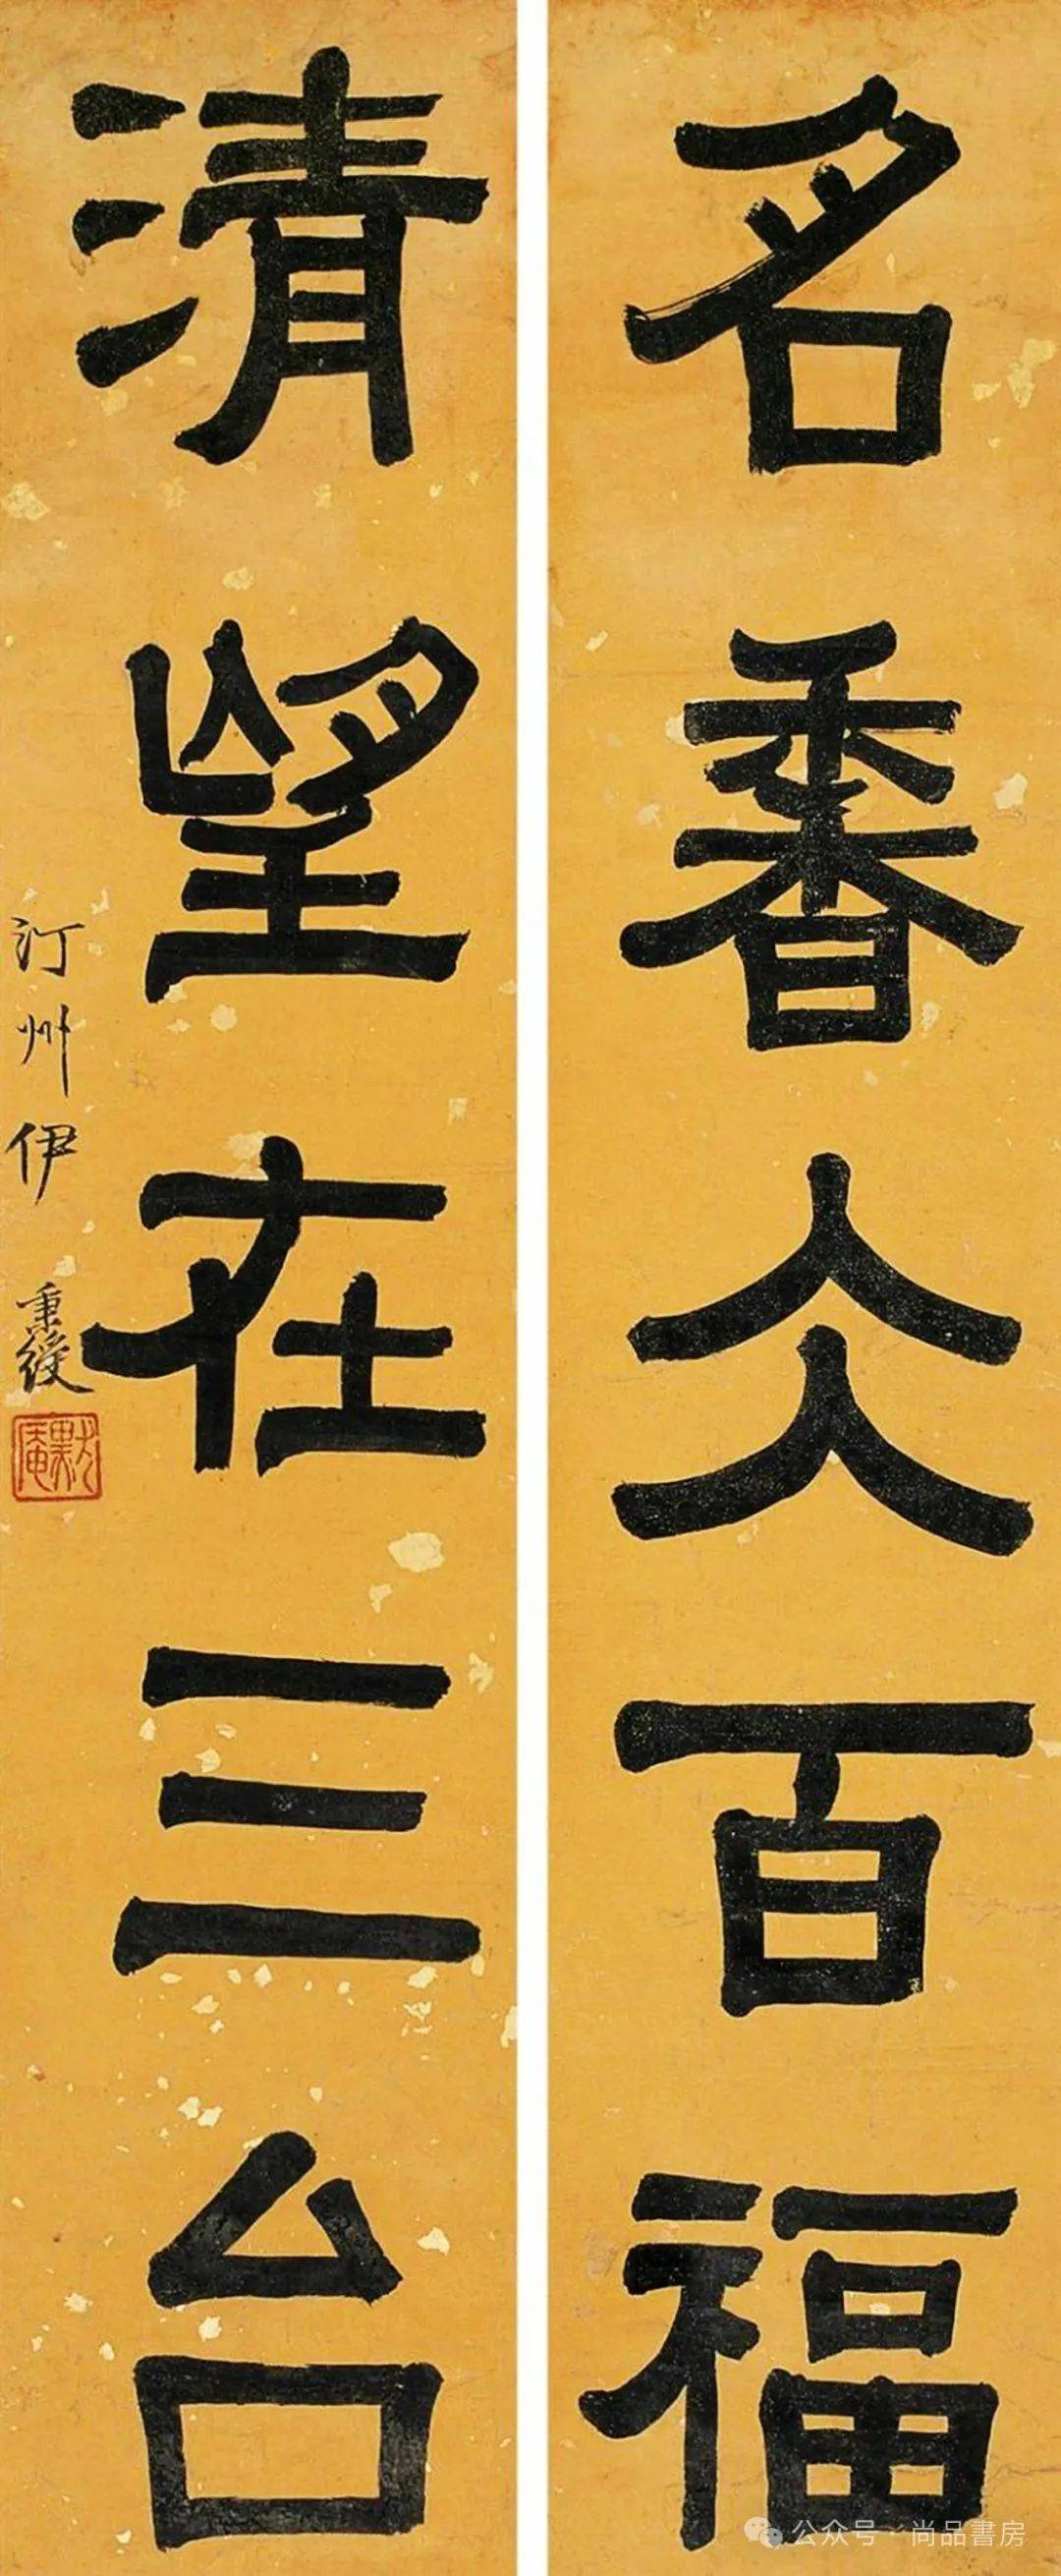 名香仌百福
清望在三台
汀州伊秉綬
默庵
公众号·尚品書房